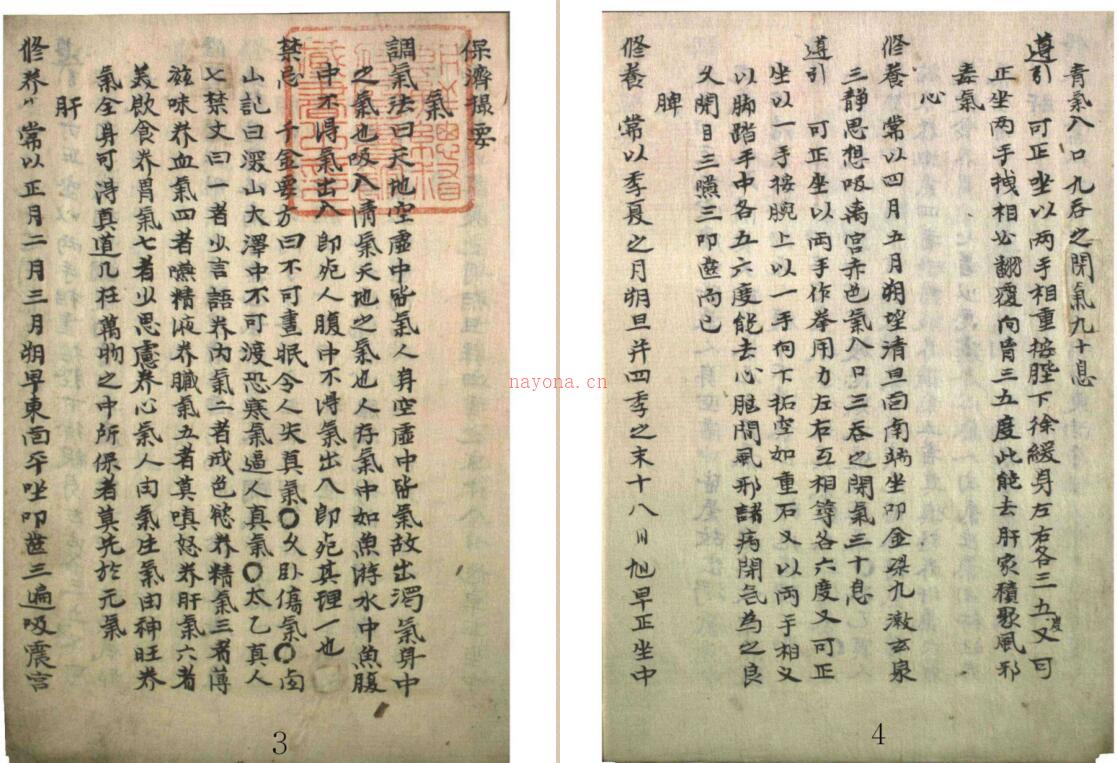 保濟撮要
氣
調氣法曰天地空虛中皆氣人身空虛中皆氣故出濁氣身中
之氣也吸入清氣天地之氣也人存氣中如魚游水中魚腹
中不得氣出入即死人腹中不得氣出入即死其理一也
禁忌 千金要方曰不可晝眠令人失真氣○久臥傷氣○卤
山記曰深山大澤中不可渡恐寒氣逼人真氣○太乙真人
七禁文曰一者少言語养內氣二者戒色慾养精氣三者薄
滋味养血氣四者嚥精液养臟氣五者莫嗔怒养肝氣六者
美飲食养胃氣七者少思慮养心氣人由氣生氣由神旺养
氣全身可得真道凡在萬物之中所保者莫先於元氣
肝
修养〃常以正月二月三月朔旦東面平坐叩齒三遍吸震宫
青氣入口九吞之閉氣九十息
遵引 可正坐以两手相重按䏶下徐緩身左右各三五度又可
正坐两手拽相叉翻覆向胷三五度此能去肝家積聚風邪
毒氣
心
修养 常以四月五月朔望清旦面南端坐叩金梁九漱玄泉
三靜思想吸离宫赤色氣入口三吞之閉氣三十息
遵引 可正坐以两手作拳用力左右互相筑各六度又可正
坐以一手按腕上以一手向下拓空如重石又以两手相叉
以脚踏手中各五六度能去心胸間風邪諸病閉气為之良
久閉目三嚥三叩齒而已
脾
修养 常以季夏之月朔旦并四季之末十八日旭旦正坐中
3
4
nayona.cn